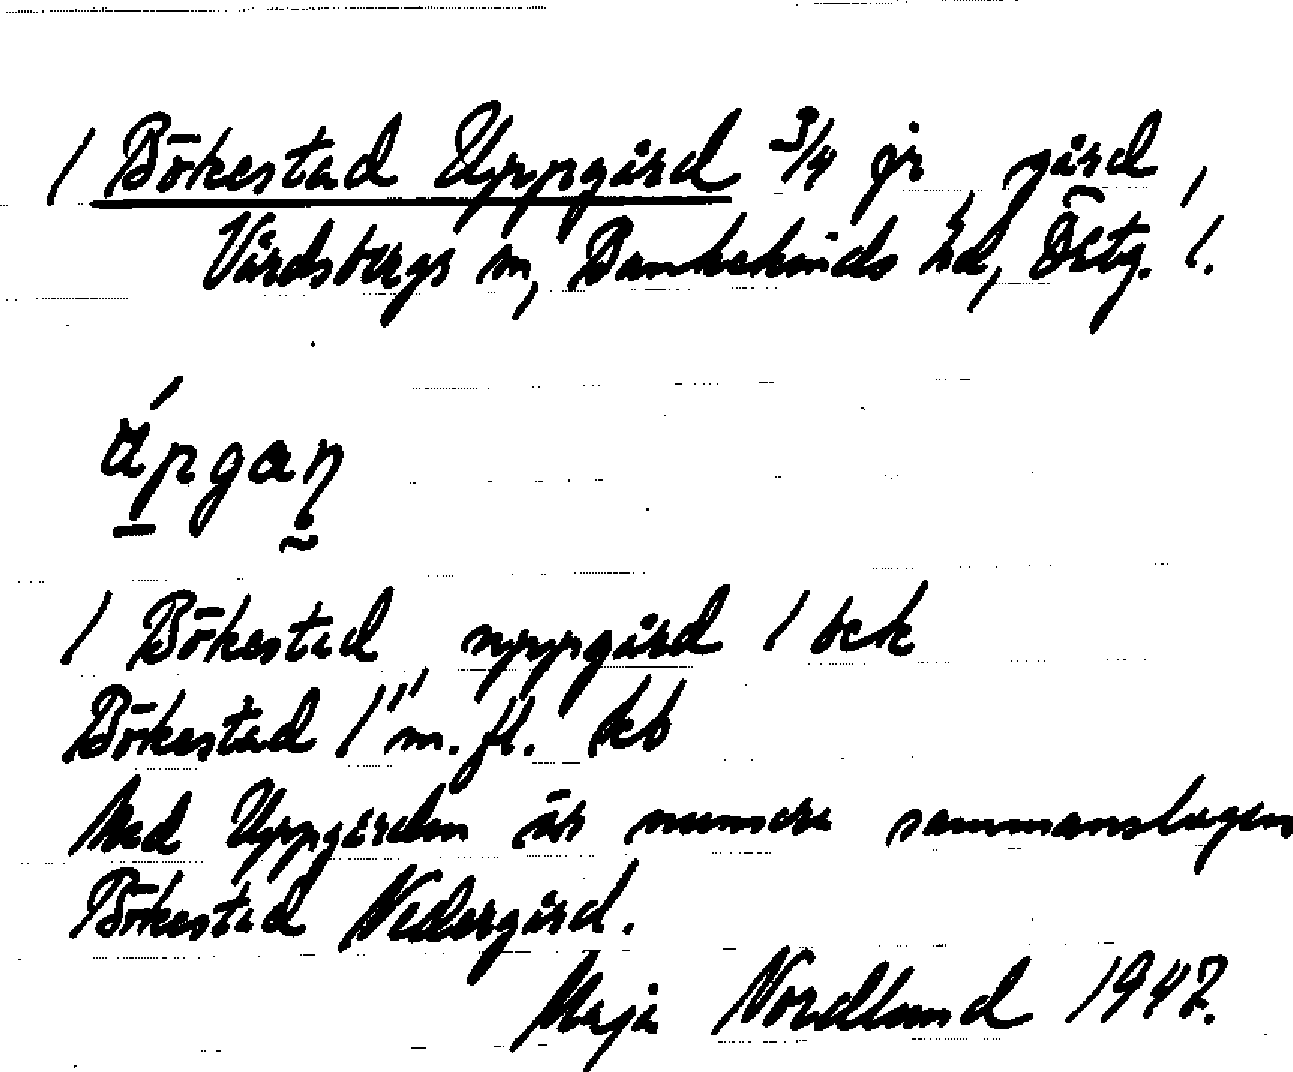 / Bökestad Uppgård 3/4 jr gård,
Vårdsbergs sn, Bankekinds hd, Östg. l.
ápgaṇ
/ Bökestad, uppgård / bek
Bökestad / " m. fl. kb
Med Uppgården är numera sammanslagen
Bökestad Nedergård.
Maja Nordlund 1947.